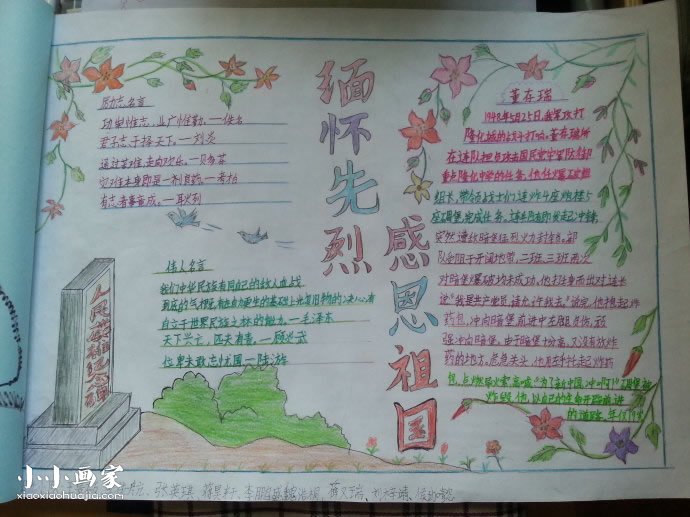 缅怀先烈
感恩祖国
励志名言
功崇惟志，业广惟勤。—佚名
君子志于择天下。—刘炎
通过苦难，走向欢乐。—贝多芬
有志者事竟成。—耿列
伟人名言
我们中华民族有同自己的敌人血战
到底的气概，有在自力更生的基础上光复旧物的决心，有
自立于世界民族之林的能力。—毛泽东
天下兴亡，匹夫有责。—顾炎武
位卑未敢忘忧国—陆游
人民英雄纪念碑
董存瑞
1948年5月25日，我军攻打
隆化城的战斗打响。董存瑞所
在连队担负攻击国民党守军防御
重点隆化中学的任务。他任爆破组
组长，带领战士们连炸4座炮楼5
座碉堡，完成任务。连队随即发起冲锋，
突然遭敌暗堡猛烈火力封锁。部
队受阻于开阔地带，二班、三班两次
对暗堡爆破均未成功。他挺身而出对连长
说"我是共产党员，请允许我去。"说完，他抱起炸
药包，冲向暗堡前进中左腿负伤，顽
强冲向暗堡。由于暗堡
药的地方。危急关头，他左手托起炸药
包，点燃导火索高喊："为了新中国，冲啊！"碉堡被
炸毁，他以自己的生命开辟前进
的道路，年仅19岁
小小画家
xiaoxiaohuajia.com